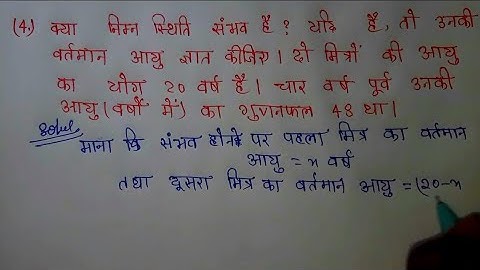 (4.) क्या निम्न स्थिति संभव है? यदि है, तो उनकी
वर्तमान आयु ज्ञात कीजिए। दो मित्रों की आयु
का योग 20 वर्ष है। चार वर्ष पूर्व उनकी
आयु (वर्षों में) का गुणनफल 48 था।
माना कि संभव होने पर पहला मित्र का वर्तमान
आयु = x वर्ष
तथा दूसरा मित्र का वर्तमान आयु = (20-x